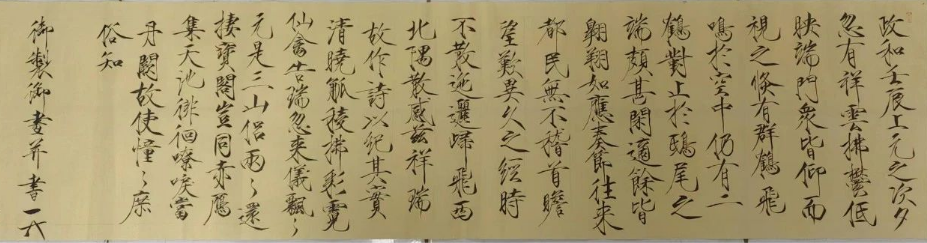 政和壬辰上元之次夕
忽有祥雲拂鬱低
映端門衆皆仰而
視之倏有群鶴飛
鳴於空中仍有二
鶴對止於鴟尾之
端頗甚閑適餘皆
翱翔如應奏節往來
都民無不稽首瞻
望歎異久之經時
不散迤邐歸飛西
北隅散感茲祥瑞
故作詩以紀其實
清曉觚稜拂彩霓
仙禽告瑞忽來儀飄〻
元是三山侶兩〻還
棲寶閣豈同赤鴈
集天池徘徊嘹唳當
丹闕故使憧〻庶
俗知
御製御畫并書